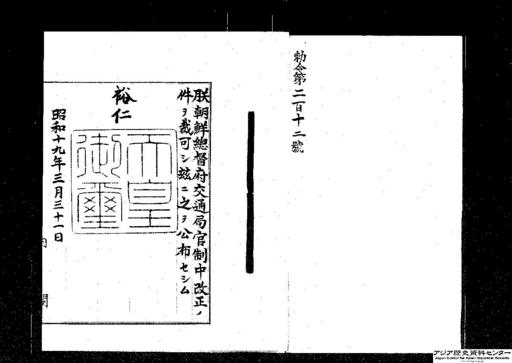 勅令第二百十二號
朕朝鮮總督府交通局官制中改正ノ
件ヲ裁可シ玆ニ之ヲ公布セシム
裕仁
天皇
御璽
昭和十九年三月三十一日
内閣
アジア歴史資料センター
Japan Center for Asian Historical Records